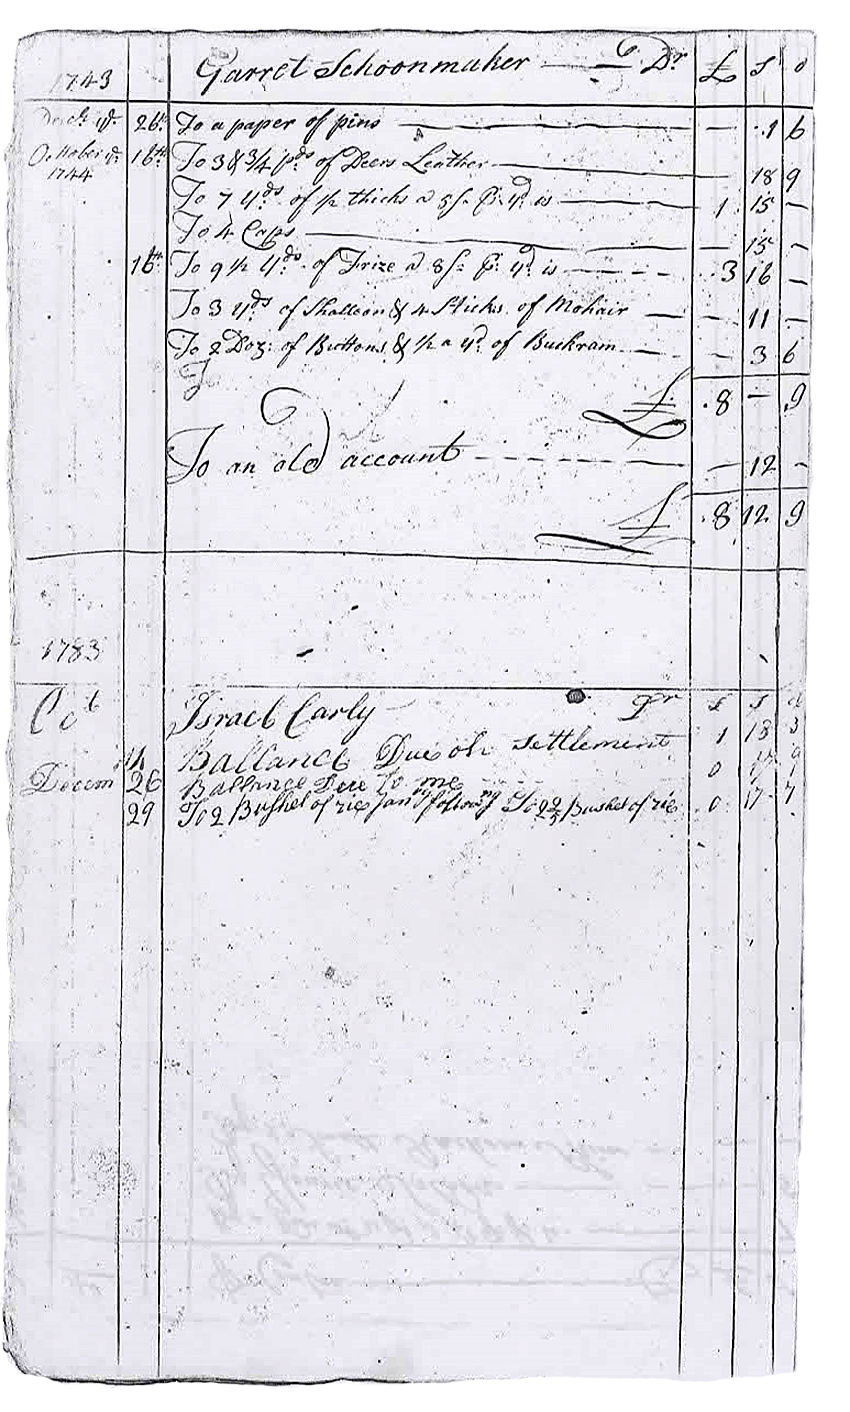 1743 Garret Schoonmaker Dr £ s d
26th To a paper of pins — 1 6
October ye 16th To 3 & 3/4 pds of Deers Leather — 18 9
1744
To 7 yds of ½ thicks a 5/= p: yd is — 1 15 —
To 4 Caps — 15 —
16th To 9 ½ yds of Frize a 8/= p: yd is — 3 16 —
To 3 yds of Shalloon & 4 Sticks of Mohair — 11 —
To 2 Doz: of Buttons & ½ a yd of Buckram — 3 6
£ 8 — 9
To an old account — 12 —
£ 8 12 9
1783
Octb Israel Carly Dr £ s d
Ballance Due on settlement 1 18 3
Decem 26 Ballance Due to me 0 17 9
29 To 2 Bushel of rie Jan followng To 2 Bushel of rie 0 17 7